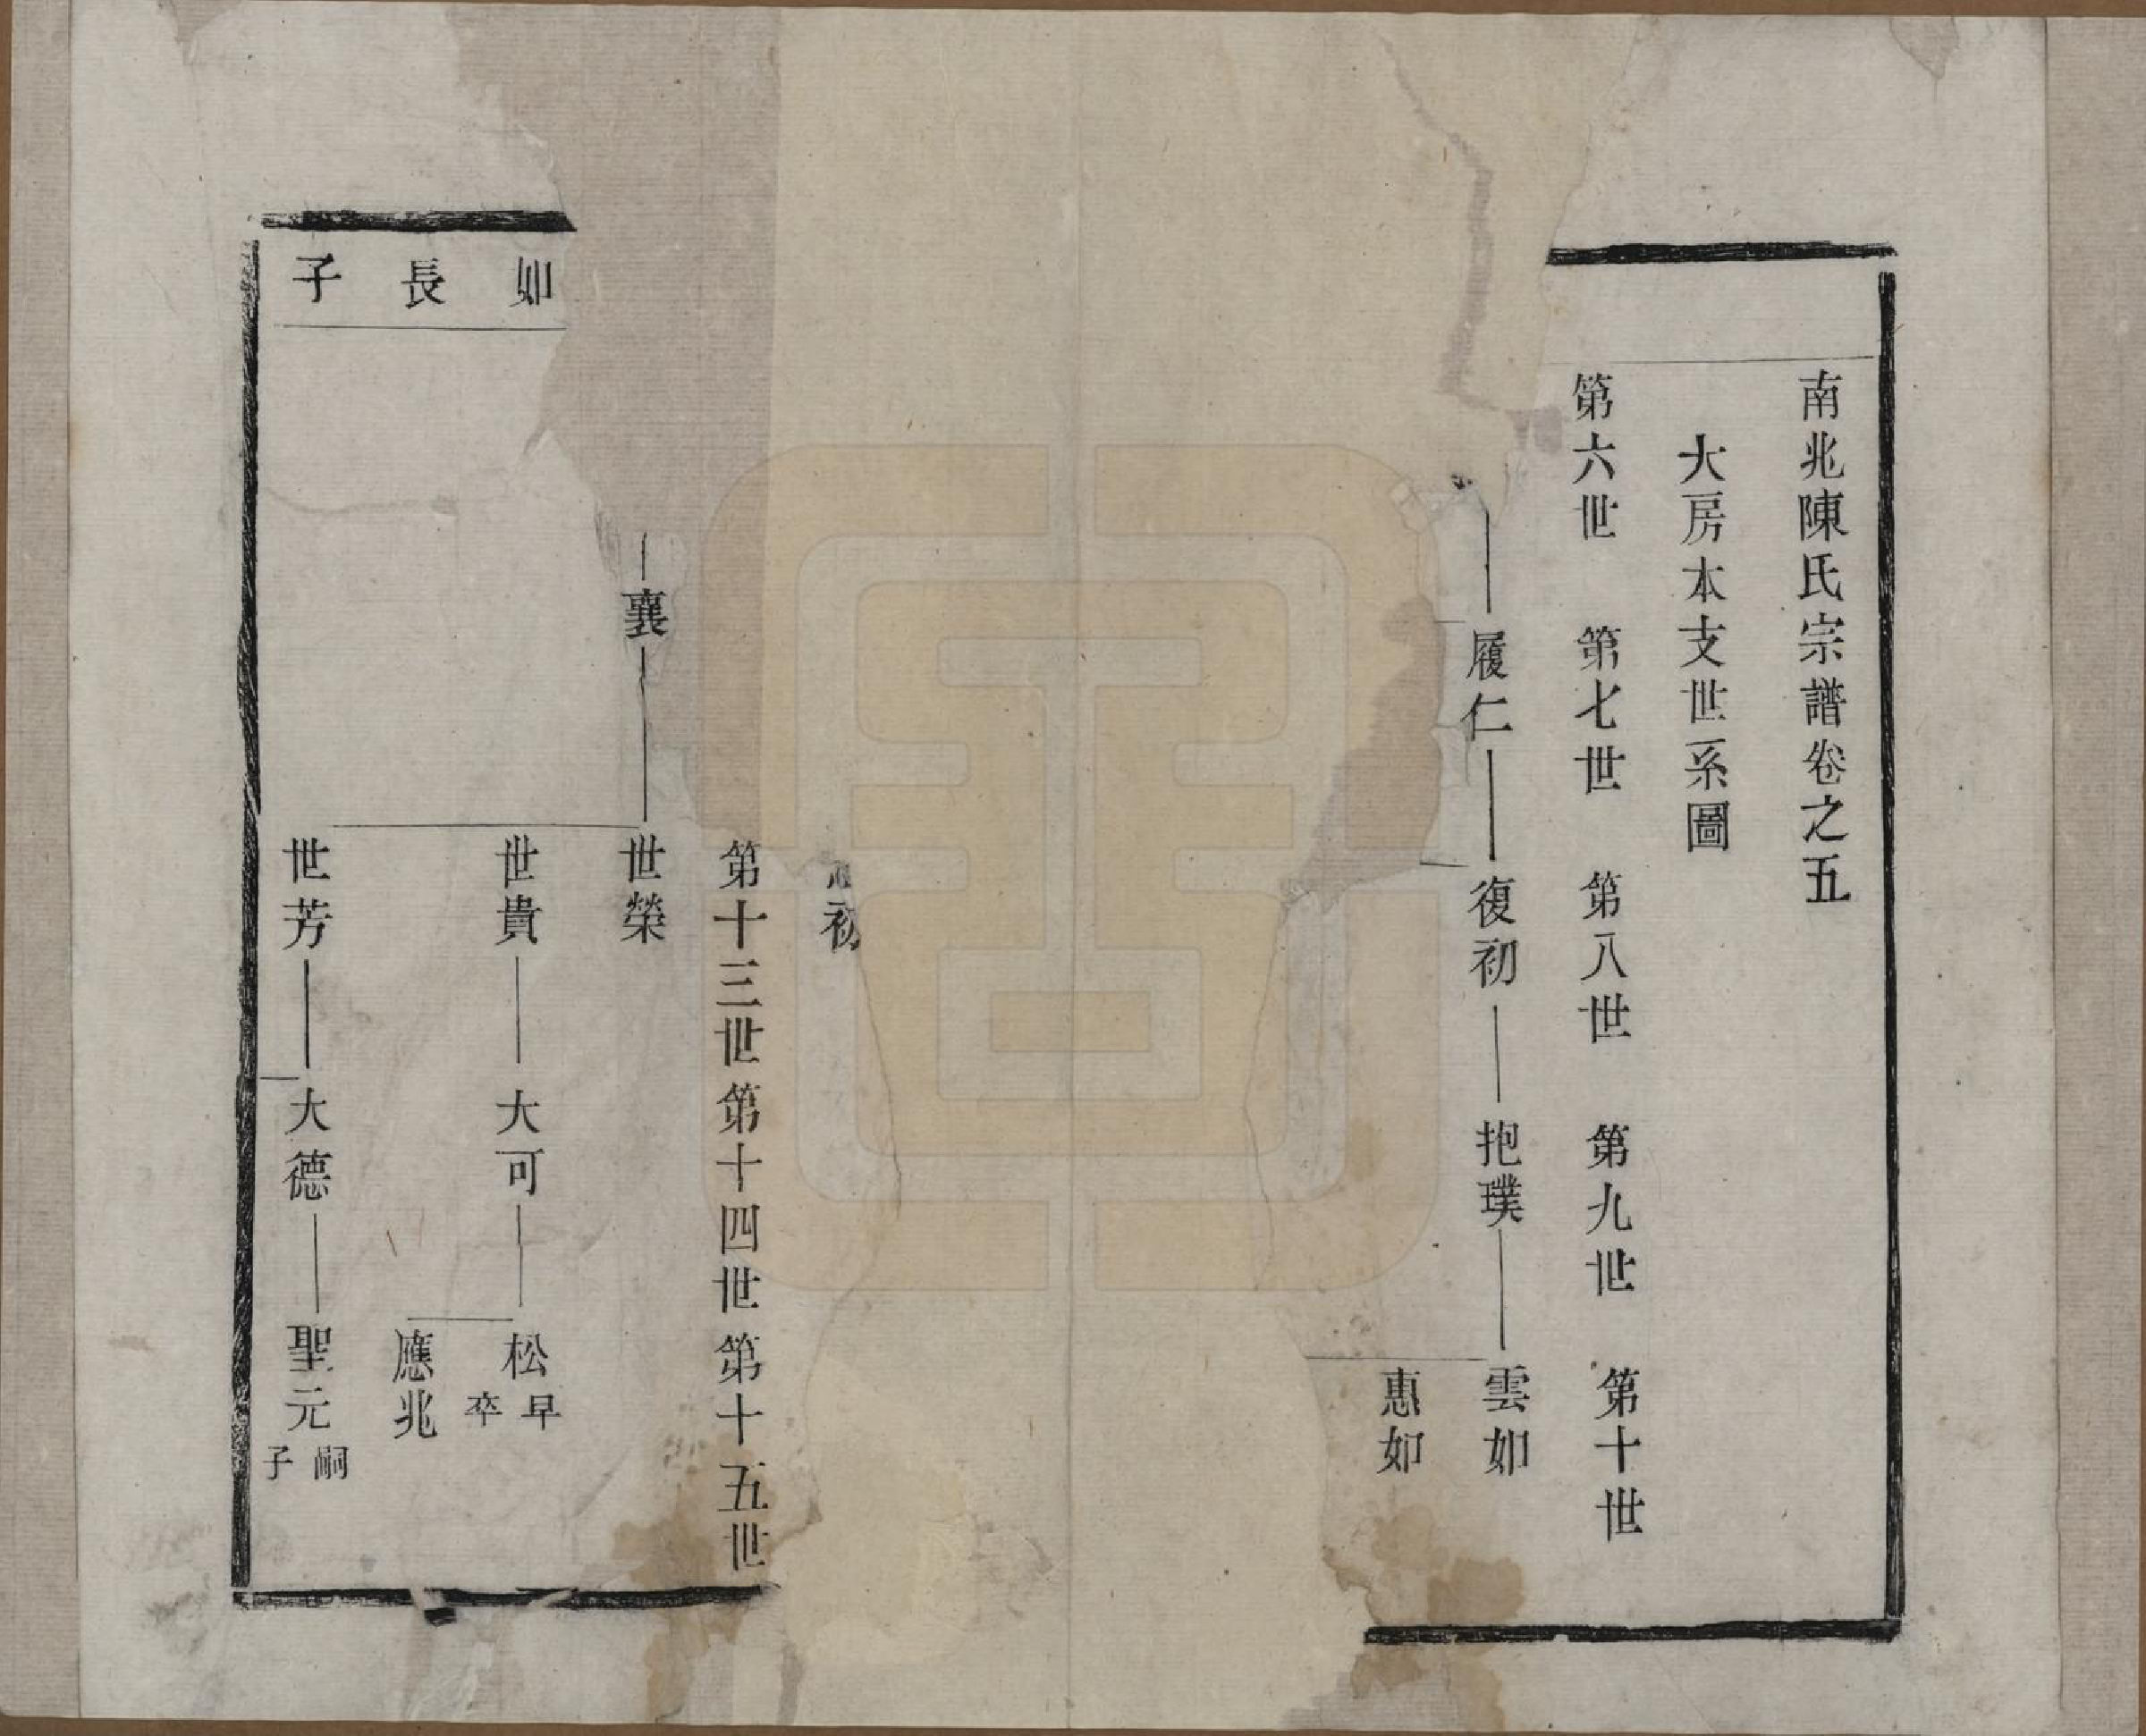 南兆陳氏宗譜卷之五
大房本支世系圖
第六世 第七世 第八世 第九世 第十世
履仁 復初 抱璞 雲如
惠如
初
第十三世 第十四世 第十五世
襄 世榮
世貴 大可 松 早卒
應兆
世芳 大德 聖元 嗣子
如長子